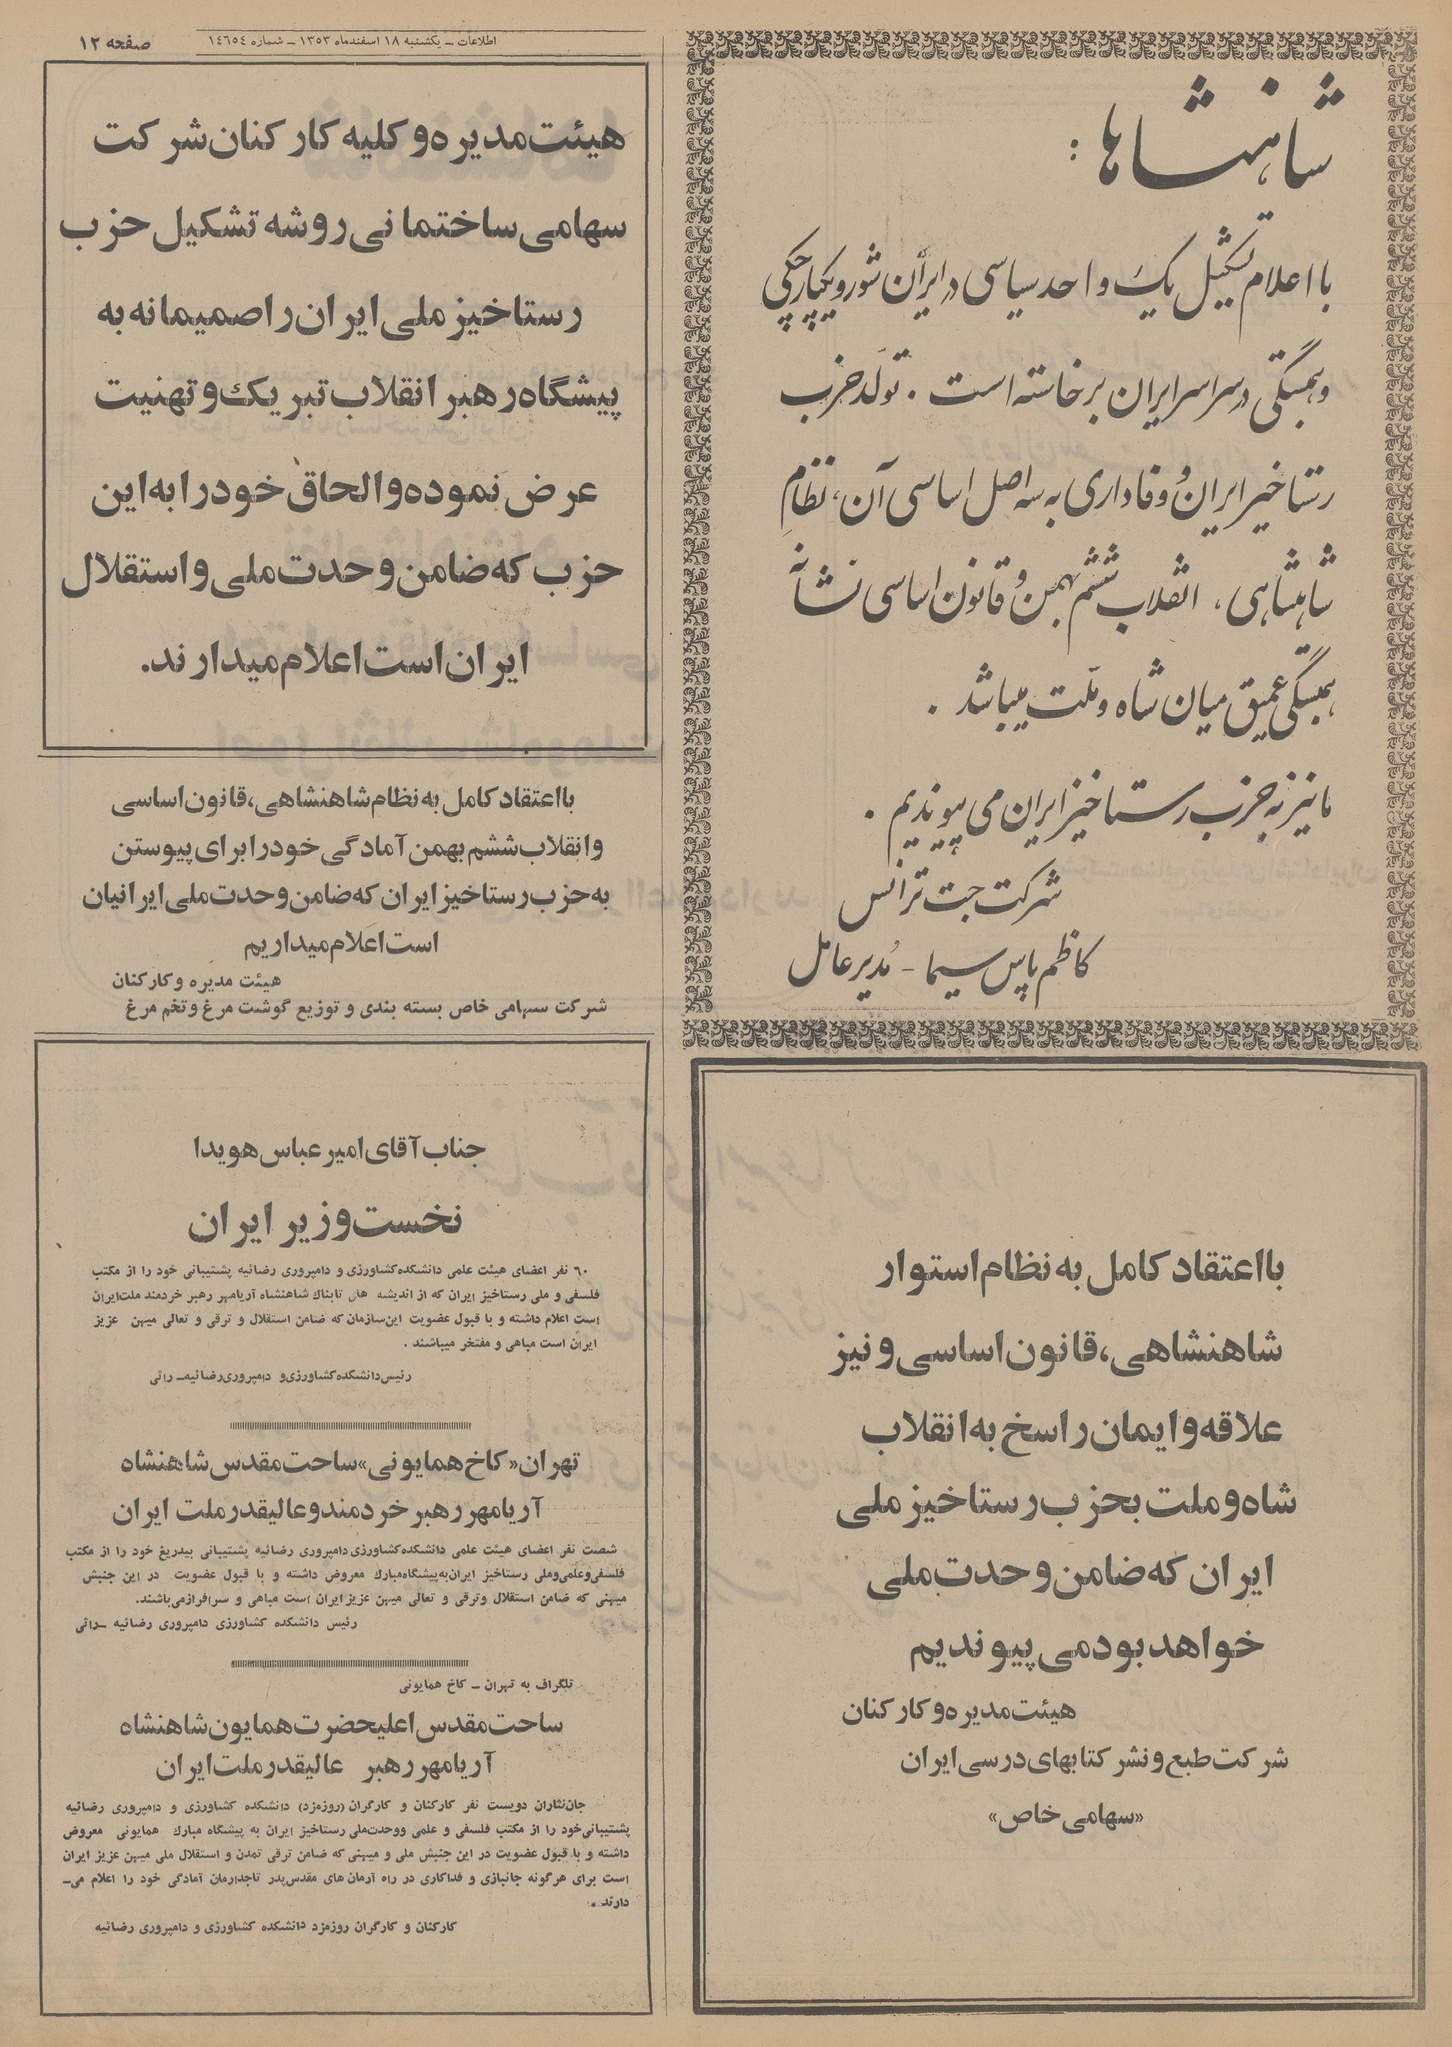 صفحه ۱۲
اطلاعات ــ یکشنبه ۱۸ اسفندماه ۱۳۵۳ ــ شماره ۱۴۶۵۴
شاهنشاها :
با اعلام تشکیل یک واحد سیاسی در ایران شور و یکپارچگی
و همبستگی در سراسر ایران برخاسته است . تولد حزب
رستاخیز ایران و وفاداری به سه اصل اساسی آن ، نظام
شاهنشاهی ، انقلاب ششم بهمن و قانون اساسی نشانه
همبستگی عمیق میان شاه و ملت میباشد .
ما نیز به حزب رستاخیز ایران می پیوندیم .
شرکت جت ترانس
کاظم پاس سیما - مدیر عامل
با اعتقاد کامل به نظام استوار
شاهنشاهی، قانون اساسی و نیز
علاقه و ایمان راسخ به انقلاب
شاه و ملت بحزب رستاخیز ملی
ایران که ضامن وحدت ملی
خواهد بود می پیوندیم
هیئت مدیره و کارکنان
شرکت طبع و نشر کتابهای درسی ایران
«سهامی خاص»
هیئت مدیره و کلیه کارکنان شرکت
سهامی ساختمانی روشه تشکیل حزب
رستاخیز ملی ایران را صمیمانه به
پیشگاه رهبر انقلاب تبریک و تهنیت
عرض نموده و الحاق خود را به این
حزب که ضامن وحدت ملی و استقلال
ایران است اعلام میدارند.
با اعتقاد کامل به نظام شاهنشاهی، قانون اساسی
و انقلاب ششم بهمن آمادگی خود را برای پیوستن
به حزب رستاخیز ایران که ضامن وحدت ملی ایرانیان
است اعلام میداریم
هیئت مدیره و کارکنان
شرکت سهامی خاص بسته بندی و توزیع گوشت مرغ و تخم مرغ
جناب آقای امیر عباس هویدا
نخست وزیر ایران
۶۰ نفر اعضای هیئت علمی دانشکده کشاورزی و دامپروری رضائیه پشتیبانی خود را از مکتب
فلسفی و ملی رستاخیز ایران که از اندیشه های تابناک شاهنشاه آریامهر رهبر خردمند ملت ایران
است اعلام داشته و با قبول عضویت این سازمان که ضامن استقلال و ترقی و تعالی میهن عزیز
ایران است مباهی و مفتخر میباشند .
رئیس دانشکده کشاورزی و دامپروری رضائیه ــ راثی
تهران «کاخ همایونی» ساحت مقدس شاهنشاه
آریامهر رهبر خردمند و عالیقدر ملت ایران
شصت نفر اعضای هیئت علمی دانشکده کشاورزی دامپروری رضائیه پشتیبانی بیدریغ خود را از مکتب
فلسفی و علمی و ملی رستاخیز ایران به پیشگاه مبارک معروض داشته و با قبول عضویت در این جنبش
میهنی که ضامن استقلال و ترقی و تعالی میهن عزیز ایران است مباهی و سرافراز می باشند.
رئیس دانشکده کشاورزی دامپروری رضائیه ــ راثی
تلگراف به تهران ــ کاخ همایونی
ساحت مقدس اعلیحضرت همایون شاهنشاه
آریامهر رهبر عالیقدر ملت ایران
جان نثاران دویست نفر کارکنان و کارگران (روزمزد) دانشکده کشاورزی و دامپروری رضائیه
پشتیبانی خود را از مکتب فلسفی و علمی و وحدت ملی رستاخیز ایران به پیشگاه مبارک همایونی معروض
داشته و با قبول عضویت در این جنبش ملی و میهنی که ضامن ترقی تمدن و استقلال ملی میهن عزیز ایران
است برای هرگونه جانبازی و فداکاری در راه آرمان های مقدس پدر تاجدارمان آمادگی خود را اعلام می‌ــ
دارند .
کارکنان و کارگران روزمزد دانشکده کشاورزی و دامپروری رضائیه